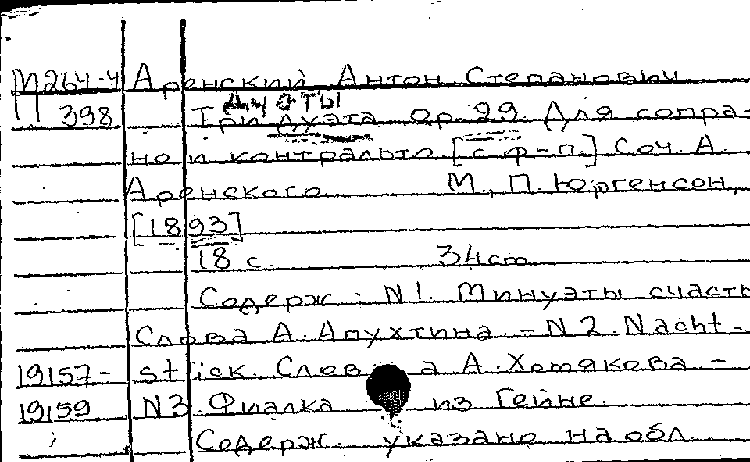 М264-4 Аренский Антон Степанович
дуэты
398 Три дуэта ор. 29. Для сопра-
но и контральто [с ф-п.] Соч. А.
Аренского М, П. Юргенсон,
[1893]
18 с 34см
Содерж: N1. Минуаты счасть
Слова А. Апухтина - N2. Nacht-
19157- stück. Слова А. Хомякова -
19159 N3. Фиалка из Гейне.
Содерж. указано на обл.